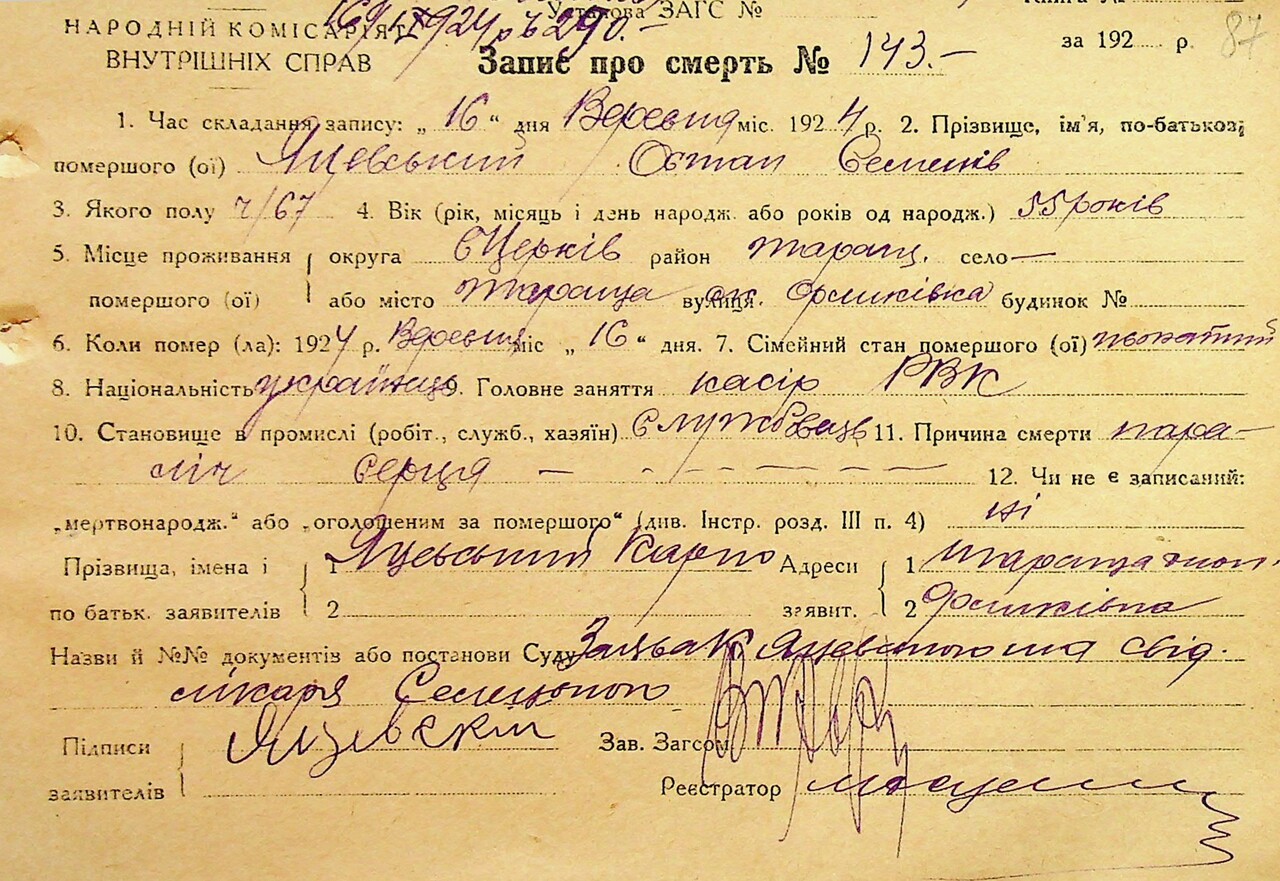 Установа ЗАГС №
НАРОДНІЙ КОМІСАРІЯТ
ВНУТРІШНІХ СПРАВ
Запис про смерть № 143.-
за 192 р.
87
1. Час складання запису: „ 16 “ дня Вересня міс. 1924 р. 2. Прізвище, ім'я, по-батькові
помершого (ої) Яцевський Остап Семенів
3. Якого полу ч/67 4. Вік (рік, місяць і день народж. або років од народж.) 55 років
5. Місце проживання округа БЦерків район Таращ. село —
помершого (ої) або місто Тараща вулиця ок. будинок №
6. Коли помер (ла): 1924 р. Вересня міс „ 16 “ дня. 7. Сімейний стан помершого (ої) жонатий
8. Національність українець 9. Головне заняття касір РВК
10. Становище в промислі (робіт., служб., хазяїн) Службовець 11. Причина смерти пара-
ліч серця — - - - - - -
12. Чи не є записаний:
„мертвонародж.“ або „оголошеним за помершого“ (див. Інстр. розд. III п. 4) ні
Прізвища, імена і 1 Яцевський Карпо Адреси 1 Тараща
по батьк. заявителів 2 заявит. 2
Назви й №№ документів або постанови Суду Заява К Яцевського та свід.
лікаря
Підписи Яцевскій Зав. Загсом
заявителів Реєстратор